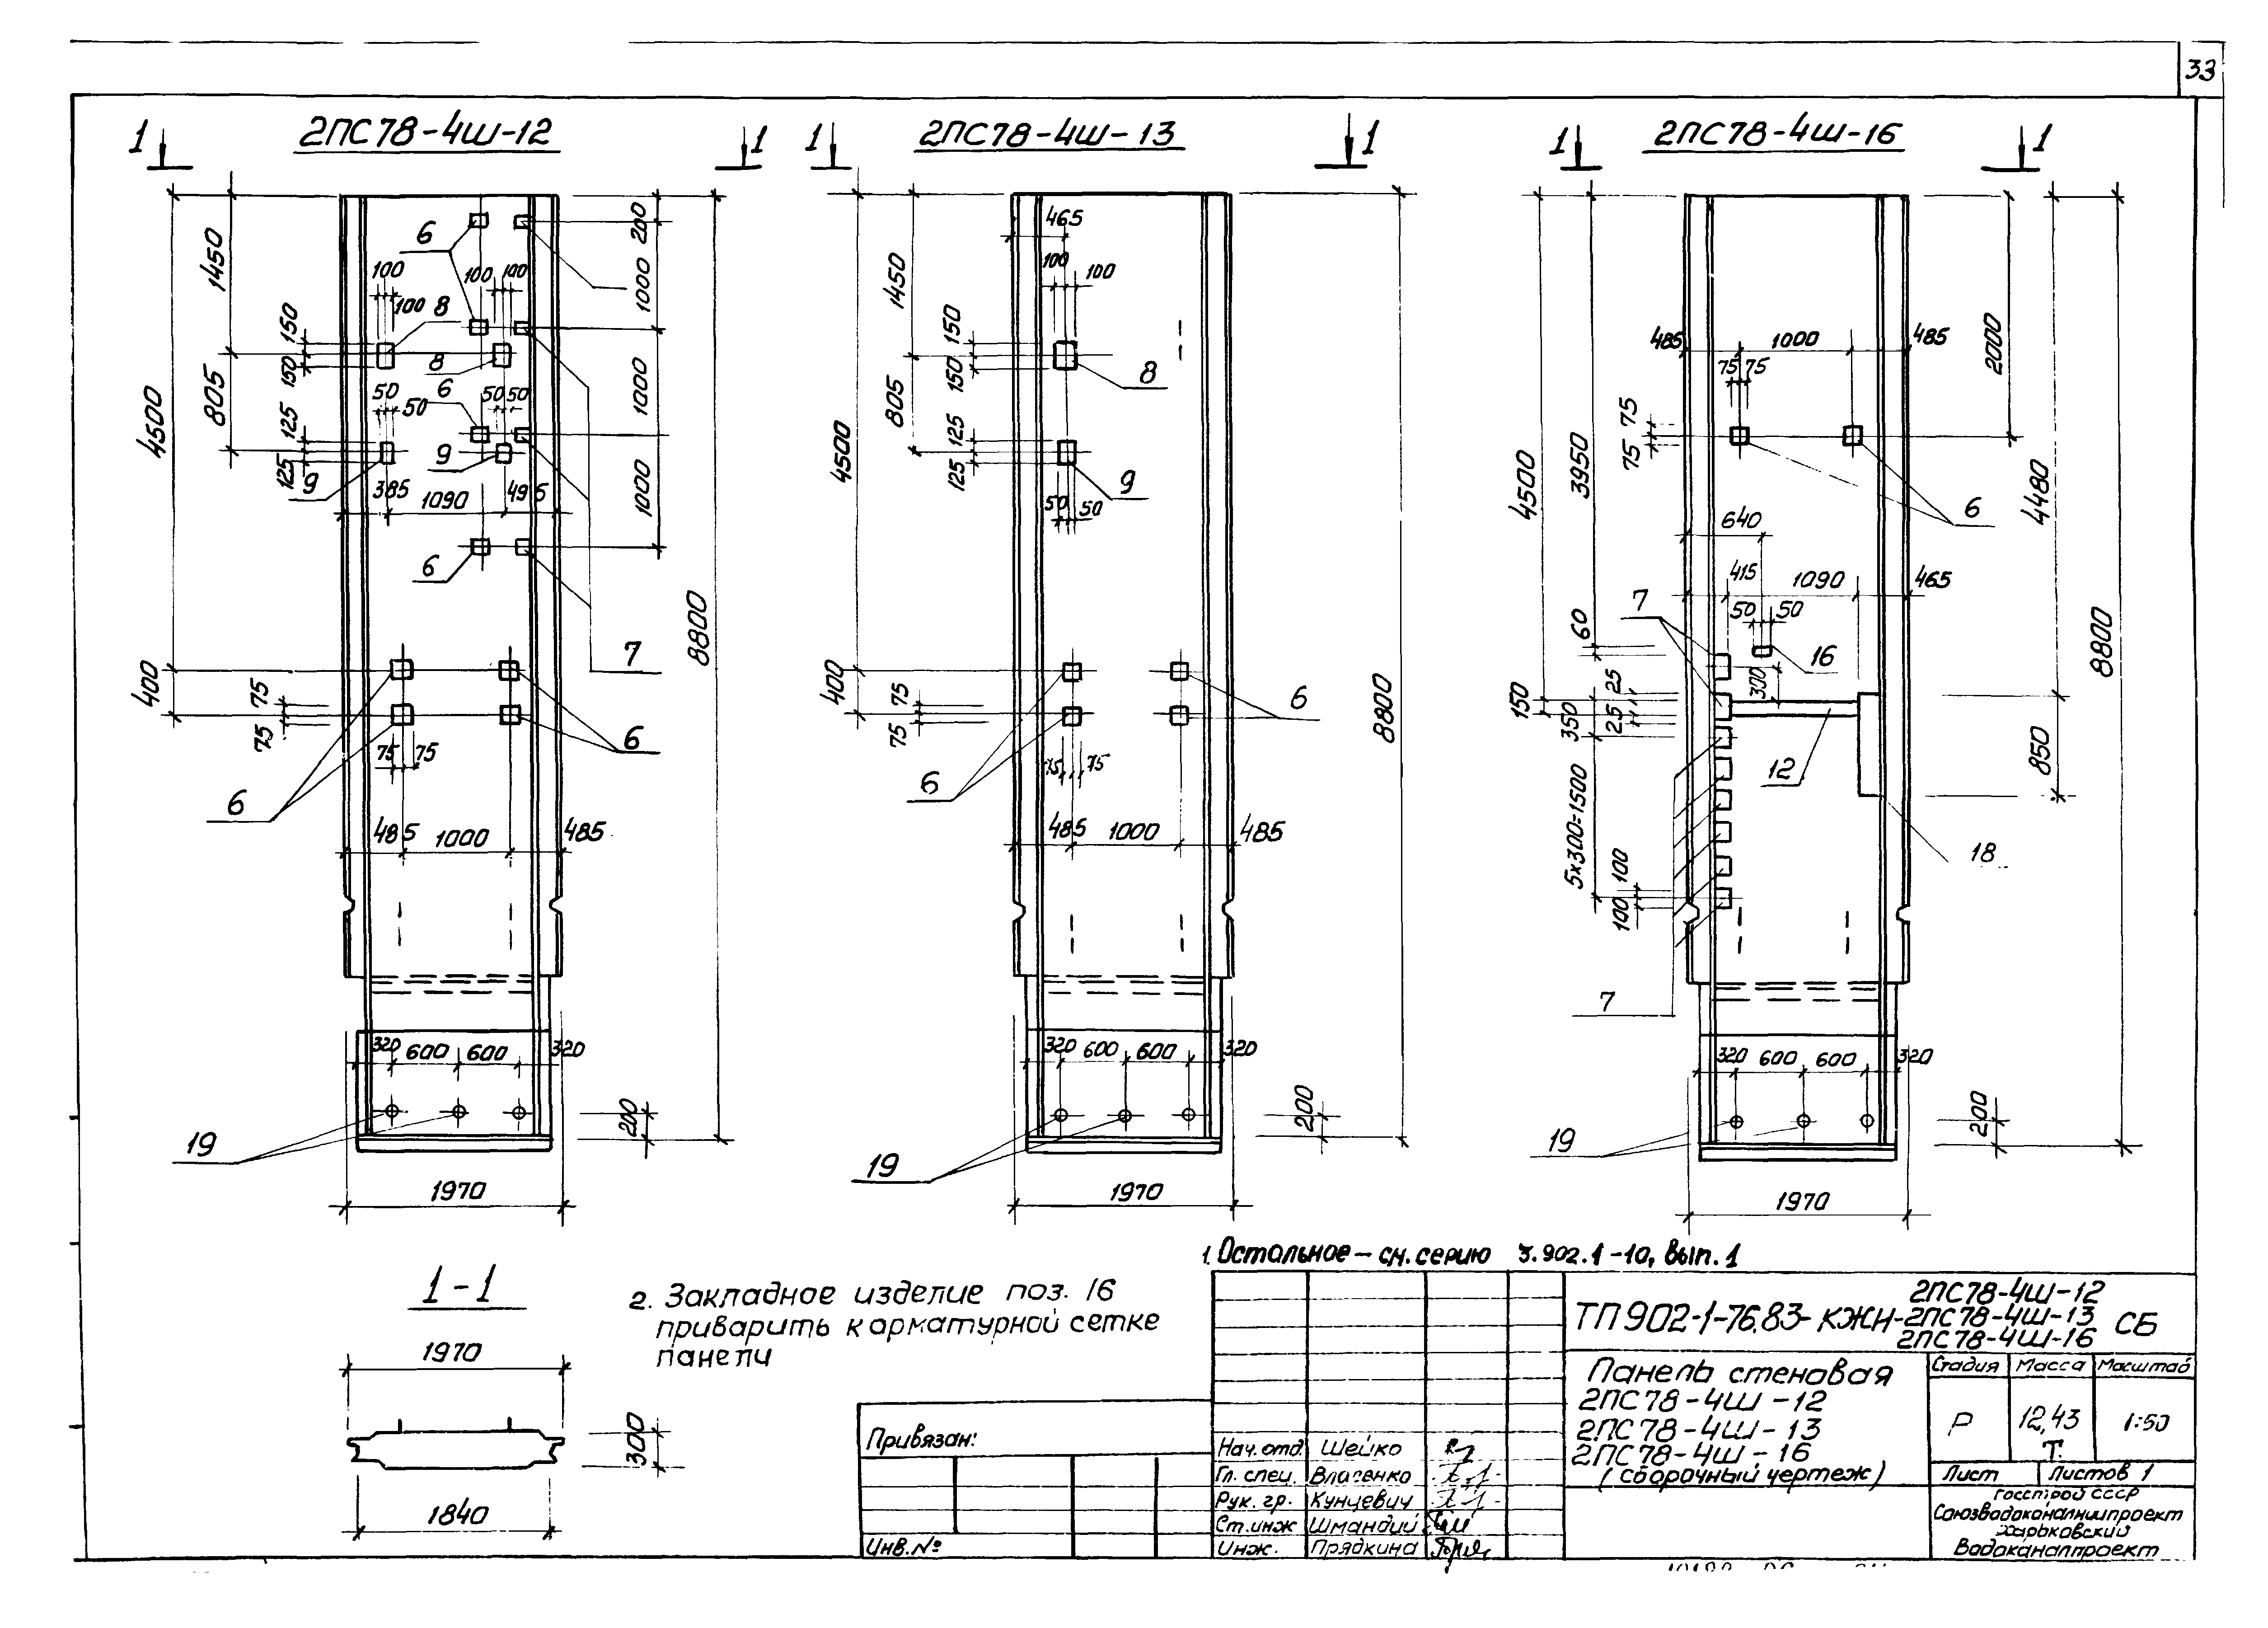 33
2ПС78-4Ш-12
1 1
1450
4500
805
400
150
150
125
125
100
100
100
100
50
50
50
50
6
8
8
6
9
9
6
7
6
6
385
1090
495
200
1000
1000
1000
8800
75
75
75
75
485
1000
485
320
600
600
320
200
19
1970
2ПС78-4Ш-13
1 1
465
100
100
1450
150
150
805
125
125
4500
400
8
9
50
50
75
75
75
75
6
6
485
1000
485
8800
320
600
600
320
200
19
1970
2ПС78-4Ш-16
1 1
485
1000
485
2000
75
75
75
75
3950
4500
4480
6
640
415
1090
465
50
50
60
7
16
300
25
25
150
350
12
850
8800
5x300=1500
18
100
100
7
320
600
600
320
200
19
1970
1-1
1970
300
1840
1. Остальное – см. серию 3.902.1-10, вып. 1
2. Закладное изделие поз. 16
приварить к арматурной сетке
панели
2ПС78-4Ш-12
ТП902-1-76.83-КЖН-2ПС78-4Ш-13 СБ
2ПС78-4Ш-16
Панель стеновая
2ПС78-4Ш-12
2ПС78-4Ш-13
2ПС78-4Ш-16
(сборочный чертеж)
Стадия Масса Масштаб
Р 12,43 Т. 1:50
Лист Листов 1
Госстрой СССР
Союзводоканалниипроект
Харьковский
Водоканалпроект
Привязан:
Инв.№
Нач. отд. Шейко
Гл. спец. Власенко
Рук. гр. Кунцевич
Ст. инж Шмандий
Инж. Прядкина